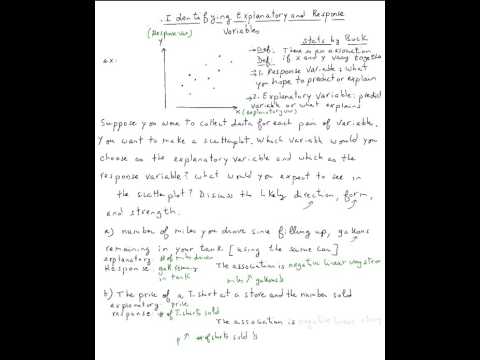 Identifying Explanatory and Response
Variables
(Response var)
y
stats by Buck
Def. There is an association
if x and y vary together
Def.
ex:
1. Response Variable: what
you hope to predict or explain
2. Explanatory Variable: predict
variable or what explains
x (explanatory var)
Suppose you were to collect data for each pair of variable.
You want to make a scatterplot. Which variable would you
choose as the explanatory variable and which as the
response variable? What would you expect to see in
the scatterplot? Discuss the likely direction, form,
and strength.
a) number of miles you drove since filling up, gallons
remaining in your tank [using the same car]
explanatory # of miles driven
Response: gal. remaing
in tank
The association is negative linear very strong
miles ↑ gallons ↓
b) The price of a T-shirt at a store and the number sold
explanatory price
response # of T-shirts sold
The association is negative linear strong
p ↑ # of shirts sold ↓